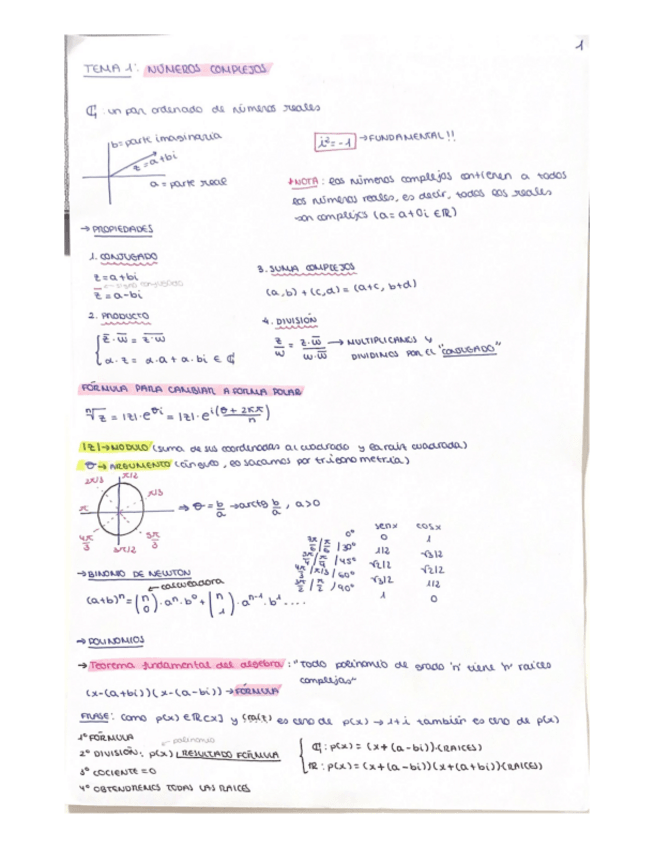 1
TEMA 1: NÚMEROS COMPLEJOS
ℂ: un par ordenado de números reales
b = parte imaginaria
z = a + bi
a = parte real
i² = -1 → FUNDAMENTAL!!
*NOTA: los números complejos contienen a todos
los números reales, es decir, todos los reales
son complejos (a = a + 0i ∈ ℝ)
→ PROPIEDADES
1. CONJUGADO
z = a + bi
z̅ = a - bi
2. PRODUCTO
z̅ · w̅ = z̅·̅w̅
α · z = α · a + α · bi ∈ ℂ
3. SUMA COMPLEJOS
(a, b) + (c, d) = (a+c, b+d)
4. DIVISIÓN
z/w = z·w̅ / w·w̅ → MULTIPLICAMOS Y
DIVIDIMOS POR EL "CONJUGADO"
FÓRMULA PARA CAMBIAR A FORMA POLAR
ⁿ√z = |z| · e^(θi) = |z| · e^(i((θ + 2kπ)/n))
|z| → MÓDULO (suma de sus coordenadas al cuadrado y la raíz cuadrada)
θ → ARGUMENTO (ángulo, lo sacamos por trigonometría)
2π/3 π/2
π/3
π
4π/3 3π/2 5π/3
⇒ θ = b/a → arctg b/a, a > 0
senx cosx
0° 0 1
π/6 / 30° 1/2 √3/2
π/4 / 45° √2/2 √2/2
π/3 / 60° √3/2 1/2
π/2 / 90° 1 0
→ BINOMIO DE NEWTON
← calculadora
(a+b)ⁿ = (n 0) · aⁿ · b⁰ + (n 1) · aⁿ⁻¹ · b¹ ....
→ POLINOMIOS
→ Teorema fundamental del álgebra: "Todo polinomio de grado 'n' tiene 'n' raíces
complejas"
(x-(a+bi))(x-(a-bi)) → FÓRMULA
FRASE: como p(x) ∈ ℝ[x] y es cero de p(x) → 1+i también es cero de p(x)
1º FÓRMULA
← polinomio
2º DIVISIÓN: p(x) | RESULTADO FÓRMULA
3º COCIENTE = 0
4º OBTENDREMOS TODAS LAS RAÍCES
ℂ: p(x) = (x + (a-bi))·(RAICES)
ℝ: p(x) = (x + (a-bi))(x + (a+bi))(RAICES)